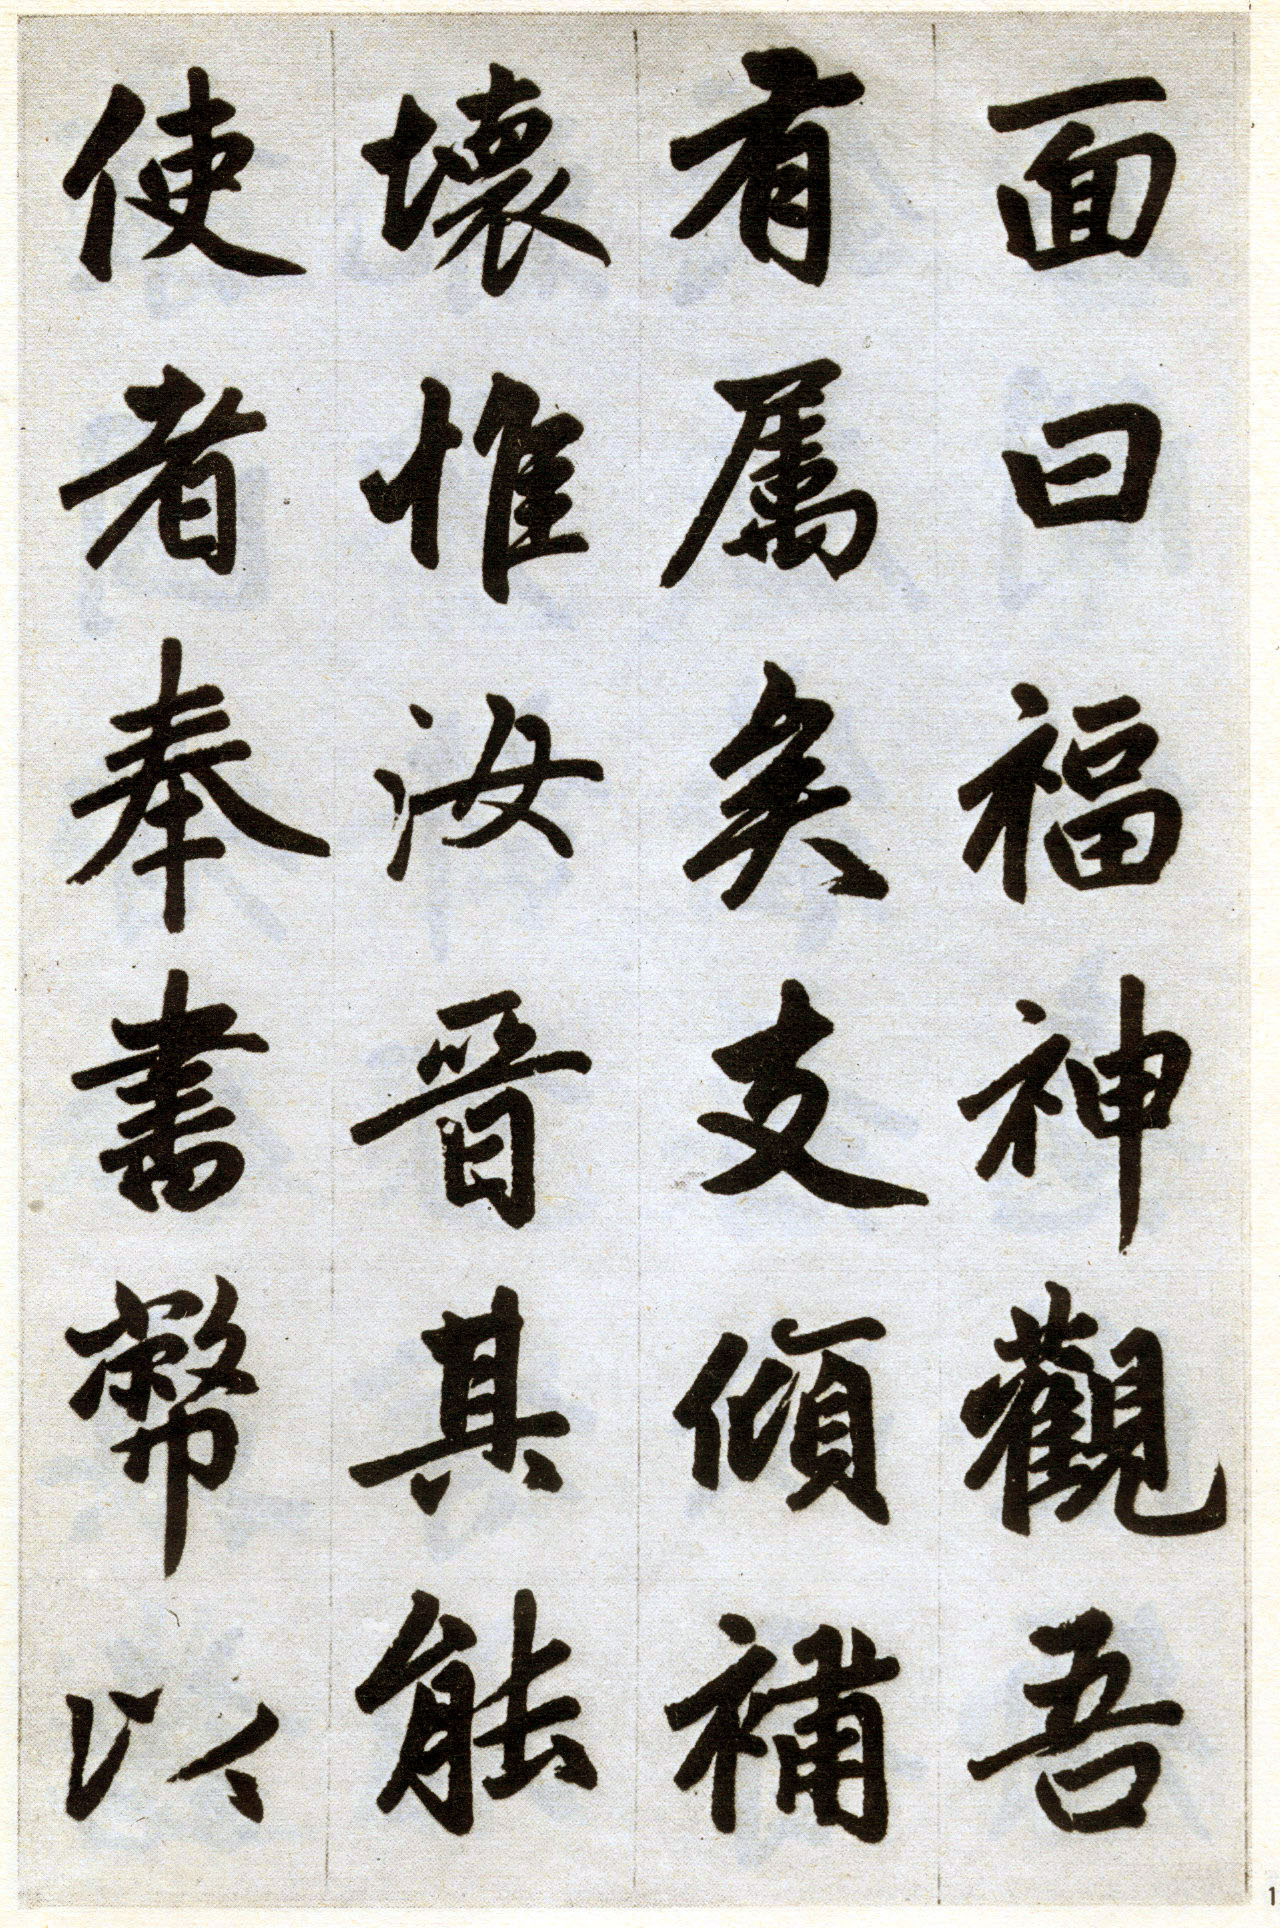 面曰福神觀吾
有属矣支傾補
壞惟汝晉其能
使者奉書幣以
1